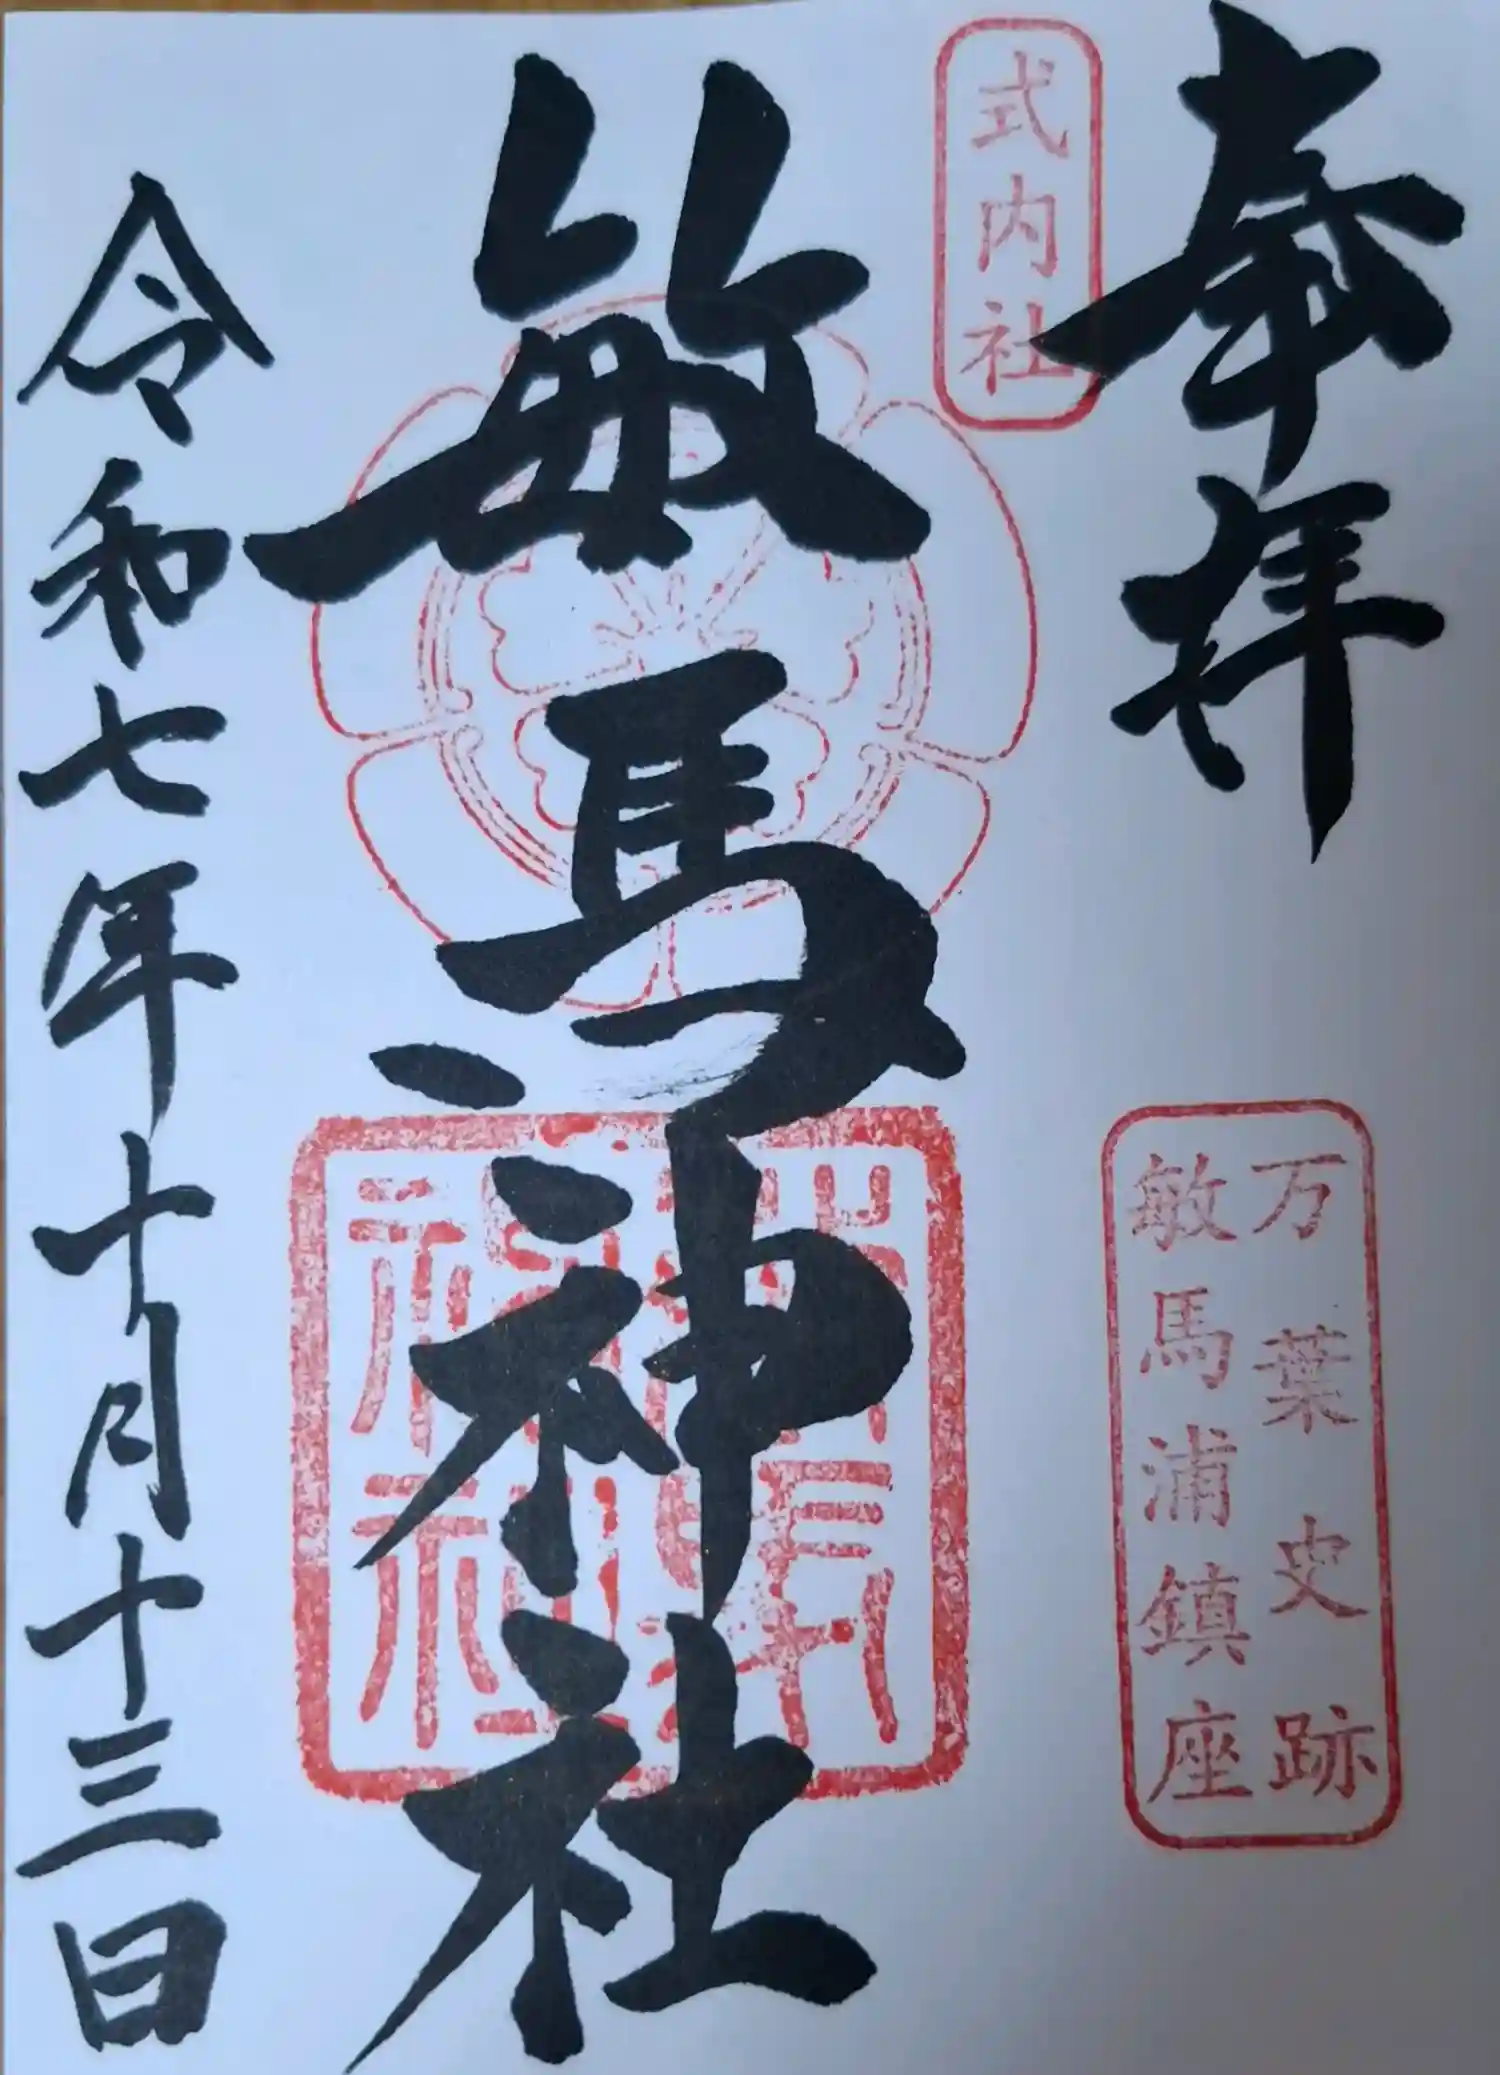 奉拝
式内社
万葉史跡
敏馬浦鎮座
敏馬神社
令和七年十月十三日